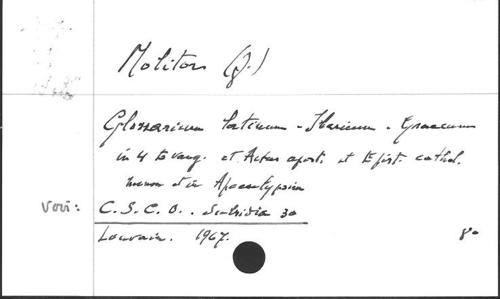 Molitor (J.)
Glossarium latinum - Ibericum - Graecum
in 4 Evang. et Actus apost. et Epist. cathol.
necnon et in Apocalypsim
Voir : C.S.C.O. . Subsidia 30
Louvain. 1967. 8°